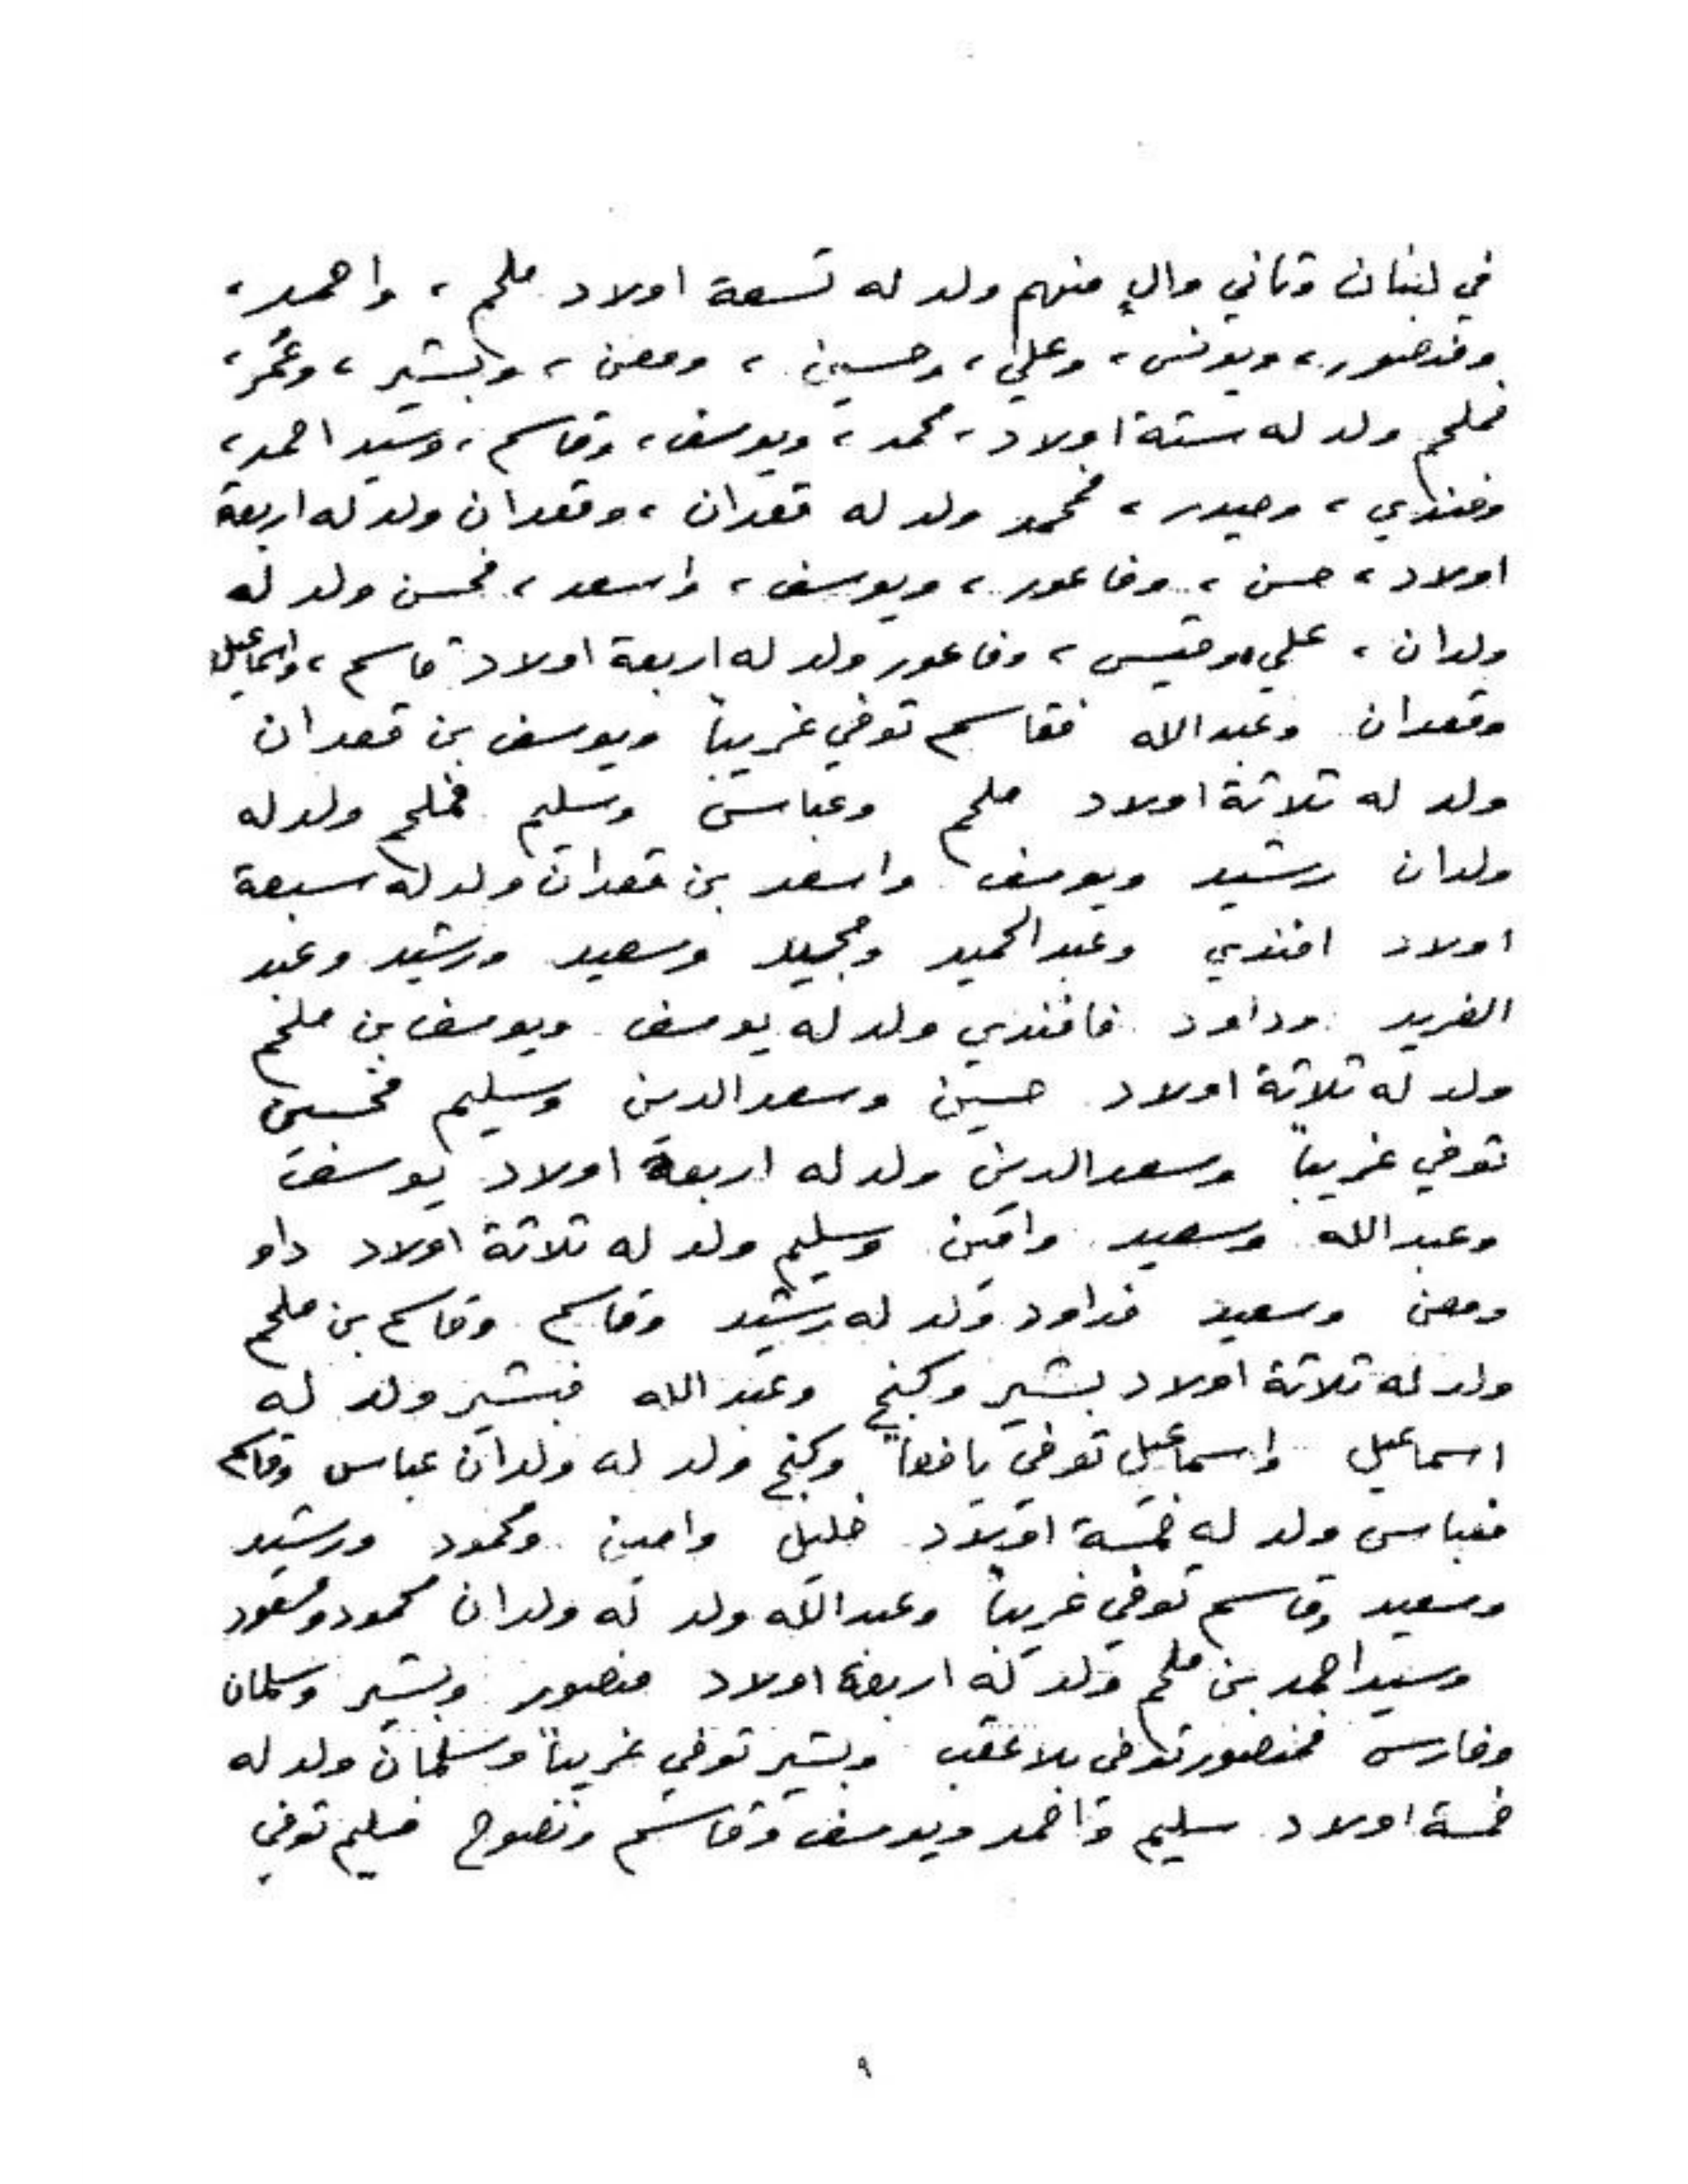 في لبنان وثاني والٍ منهم ولد له تسعة اولاد ملحم ، واحمد ،
ومنصور ، ويونس ، وعلي ، وحسين ، ومعن ، وبشير ، وعُمَر ،
فملحم ولد له ستة اولاد ، محمد ، ويوسف ، وقاسم ، وسيد احمد ،
وفندي ، وحيدر ، فمحمد ولد له قعدان ، وقعدان ولد له اربعة
اولاد ، حسن ، وفاعور ، ويوسف ، واسعد ، فحسن ولد له
ولدان ، علي ، وقيس ، وفاعور ولد له اربعة اولاد قاسم ، واسماعيل
وقعدان وعبدالله فقاسم توفي غريباً ويوسف بن قعدان
ولد له ثلاثة اولاد ملحم وعباس وسليم فملحم ولد له
ولدان رشيد ويوسف واسعد بن قعدان ولد له سبعة
اولاد افندي وعبدالحميد ومجيد وسعيد ورشيد وعبد
الفريد وداود فافندي ولد له يوسف ويوسف بن ملحم
ولد له ثلاثة اولاد حسين وسعدالدين وسليم فحسين
توفي غريباً وسعدالدين ولد له اربعة اولاد يوسف
وعبدالله وسعيد وامين وسليم ولد له ثلاثة اولاد داو
ومعن وسعيد فداود ولد له رشيد وقاسم وقاسم بن ملحم
ولد له ثلاثة اولاد بشير وكنج وعبدالله فبشير ولد له
اسماعيل واسماعيل توفي يافعاً وكنج ولد له ولدان عباس وقاسم
فعباس ولد له خمسة اولاد خليل وامين ومحمود ورشيد
وسعيد وقاسم توفي غريباً وعبدالله ولد له ولدان محمود ومسعود
وسيد احمد بن ملحم ولد له اربعة اولاد منصور وبشير وسلمان
وفارس فمنصور توفي بلا عقب وبشير توفي غريباً وسلمان ولد له
خمسة اولاد سليم واحمد ويوسف وقاسم ونصوح فسليم توفي
٩